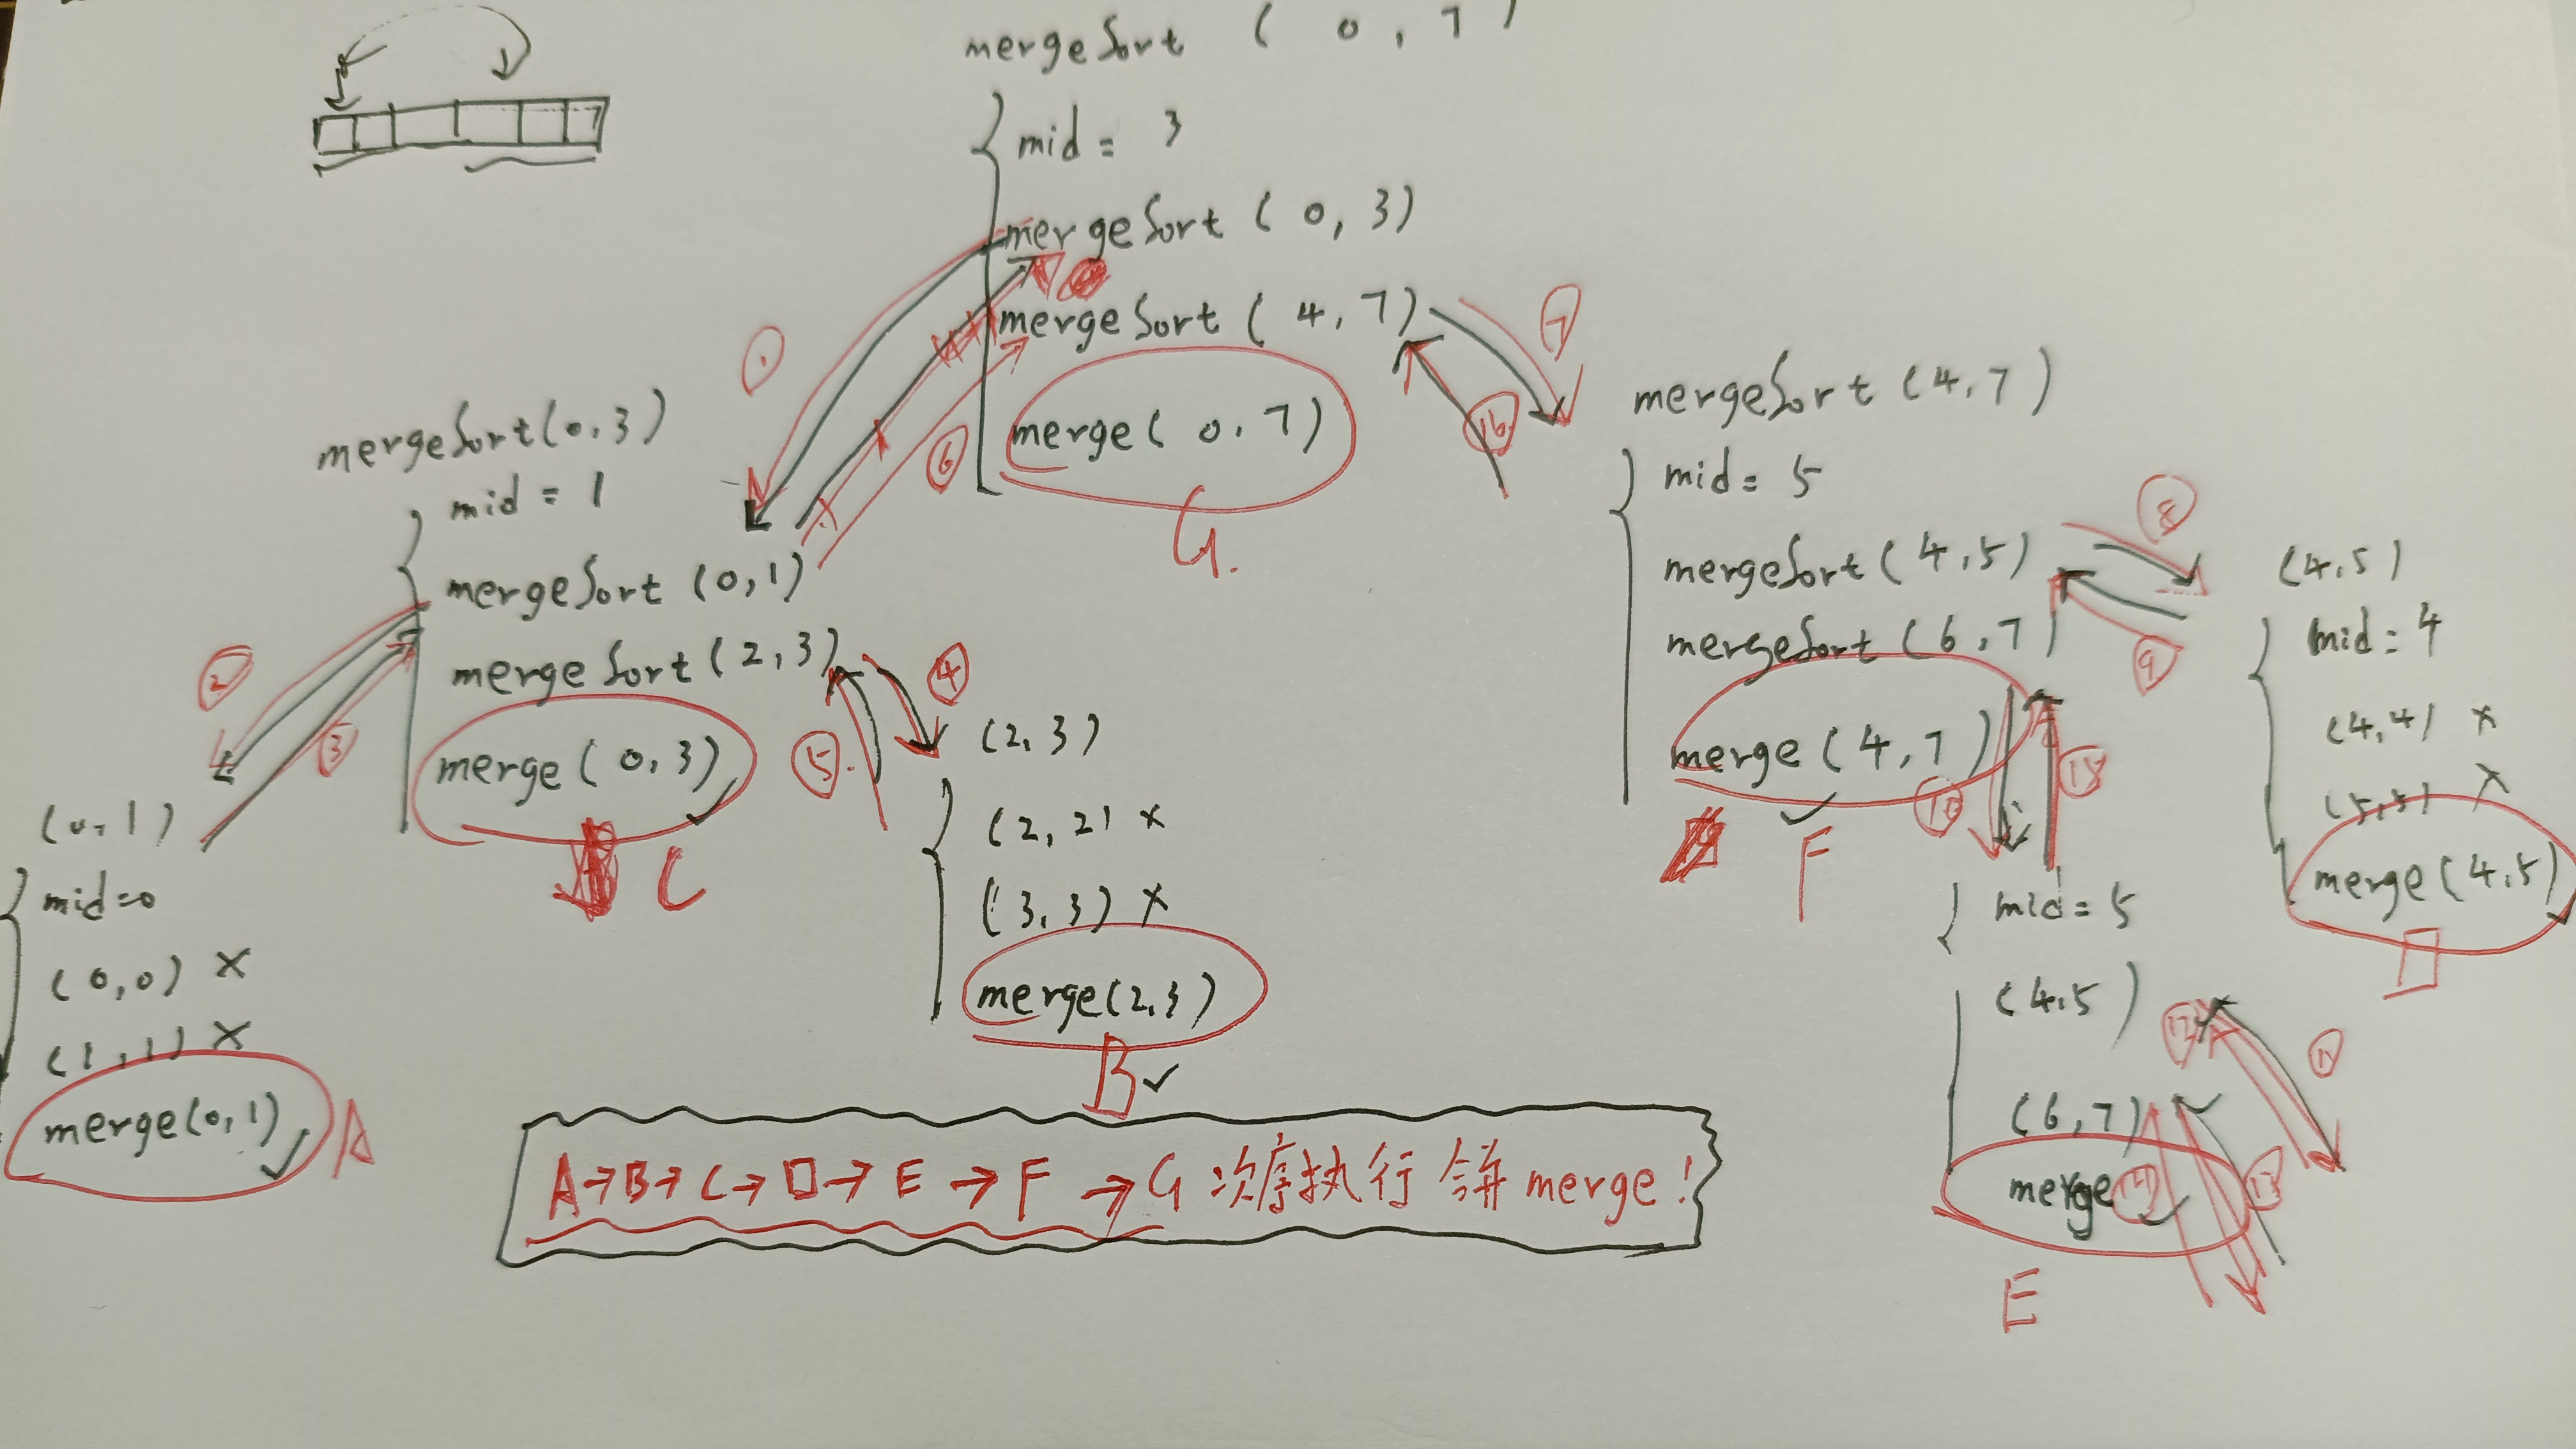 mergeSort ( 0 , 7 )
mid = 3
mergeSort ( 0 , 3 )
mergeSort ( 4 , 7 )
merge ( 0 , 7 )
G.
①
⑥
⑦
⑯
mergeSort(0,3)
mid = 1
mergeSort (0,1)
mergeSort (2,3)
merge ( 0,3)
C
②
③
④
⑤
(0,1)
mid=0
(0,0) ×
(1,1) ×
merge(0,1) ✓
A
(2,3)
(2,2) ×
(3,3) ×
merge(2,3)
B ✓
mergeSort (4,7)
mid = 5
mergeSort (4,5)
mergeSort (6,7)
merge (4,7)
F
⑧
⑨
⑩
⑮
(4,5)
mid = 4
(4,4) ×
(5,5) ×
merge (4,5)
D
mid = 5
(4,5)
(6,7)
merge
E
⑪
⑫
⑬
⑭
A→B→C→D→E→F→G 次序执行 合并 merge!